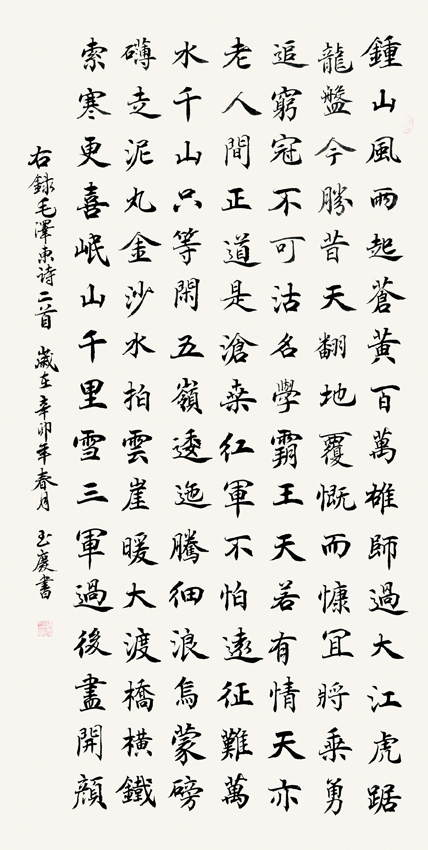 鍾山風雨起蒼黃百萬雄師過大江虎踞
龍盤今勝昔天翻地覆慨而慷宜將乘勇
追窮寇不可沽名學霸王天若有情天亦
老人間正道是滄桒红軍不怕遠征難萬
水千山只等閑五嶺逶迤騰细浪烏蒙磅
礴走泥丸金沙水拍雲崖暖大渡橋橫鐵
索寒更喜岷山千里雪三軍過後盡開顏
右録毛澤東诗二首 歲在辛卯年春月 玉慶書